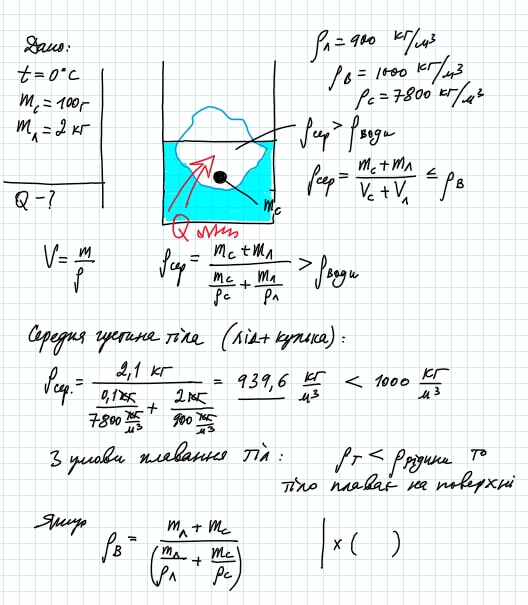 Дано:
t = 0°C
m_c = 100г
m_л = 2 кг
Q - ?
ρ_л = 900 кг/м³
ρ_в = 1000 кг/м³
ρ_c = 7800 кг/м³
ρ_сер > ρ_води
ρ_сер = (m_c + m_л)/(V_c + V_л) ≤ ρ_в
m_c
Q
V = m/ρ
ρ_сер = (m_c + m_л)/(m_c/ρ_c + m_л/ρ_л) > ρ_води
Середня густина тіла (лід + кулька):
ρ_сер. = 2,1 кг/(0,1 кг/7800 кг/м³ + 2 кг/900 кг/м³) = 939,6 кг/м³ < 1000 кг/м³
З умови плавання тіл: ρ_т < ρ_рідини то
тіло плаває на поверхні
Якщо
ρ_в = (m_л + m_c)/(m_л/ρ_л + m_c/ρ_c) | × ( )